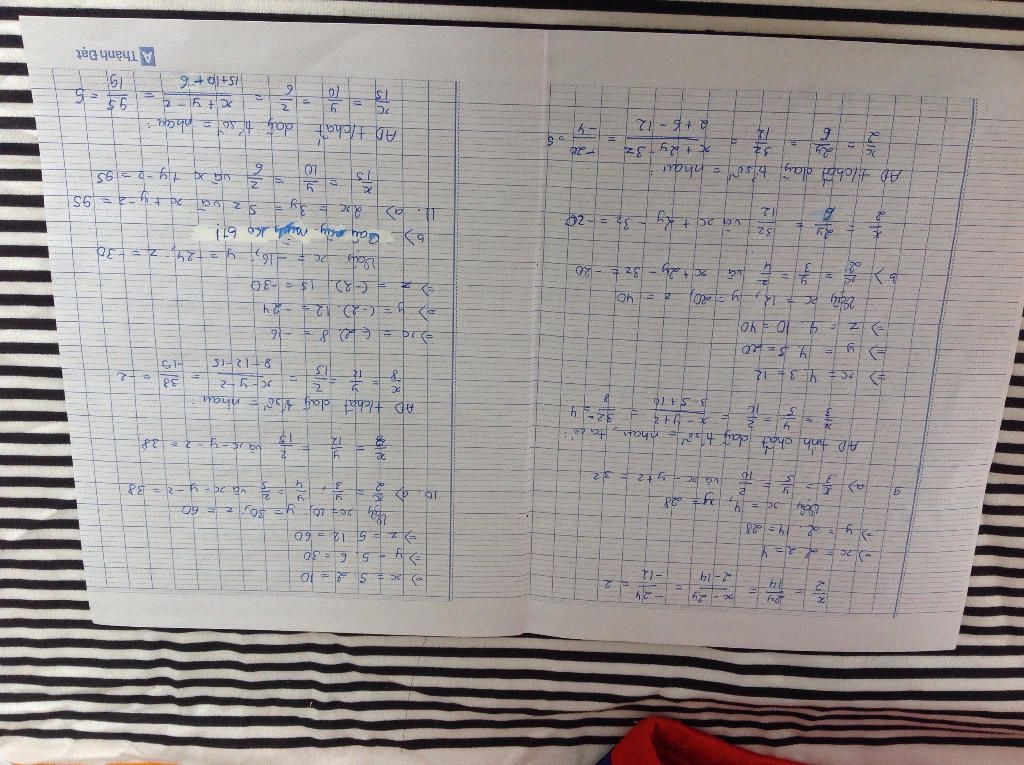 x/2 = 2y/14 = (x-2y)/(2-14) = -24/-12 = 2
=> x = 2.2 = 4
=> y = 2.14 = 28
Vậy x = 4, y = 28
9 a) x/3 = y/5 = z/10 và x - y + z = 32
AD tính chất dãy t'số = nhau, ta có:
x/3 = y/5 = z/10 = (x-y+z)/(3-5+10) = 32/8 = 4
=> x = 4.3 = 12
=> y = 4.5 = 20
=> z = 4.10 = 40
Vậy x = 12, y = 20, z = 40
b) x/2 = y/3 = z/4 và x + 2y - 3z = -20
x/2 = 2y/6 = 3z/12 và x + 2y - 3z = -20
AD t/chất dãy t'số = nhau:
x/2 = 2y/6 = 3z/12 = (x+2y-3z)/(2+6-12) = -20/-4 = 5
=> x = 5.2 = 10
=> y = 5.6 = 30
=> z = 5.12 = 60
Vậy x = 10, y = 30, z = 60
10. a) x/2 = y/3, y/4 = z/5 và x - y - z = 38
x/8 = y/12 = z/15 và x - y - z = 38
AD t/chất dãy t'số = nhau:
x/8 = y/12 = z/15 = (x-y-z)/(8-12-15) = 38/-19 = -2
=> x = (-2).8 = -16
=> y = (-2).12 = -24
=> z = (-2).15 = -30
Vậy x = -16, y = -24, z = -30
b) này ko bt!
11. a) 2x = 3y = 5z và x + y - z = 95
x/15 = y/10 = z/6 và x + y - z = 95
AD t/chất dãy t'số = nhau:
x/15 = y/10 = z/6 = (x+y-z)/(15+10+6) = 95/19 = 5
Thành Đạt